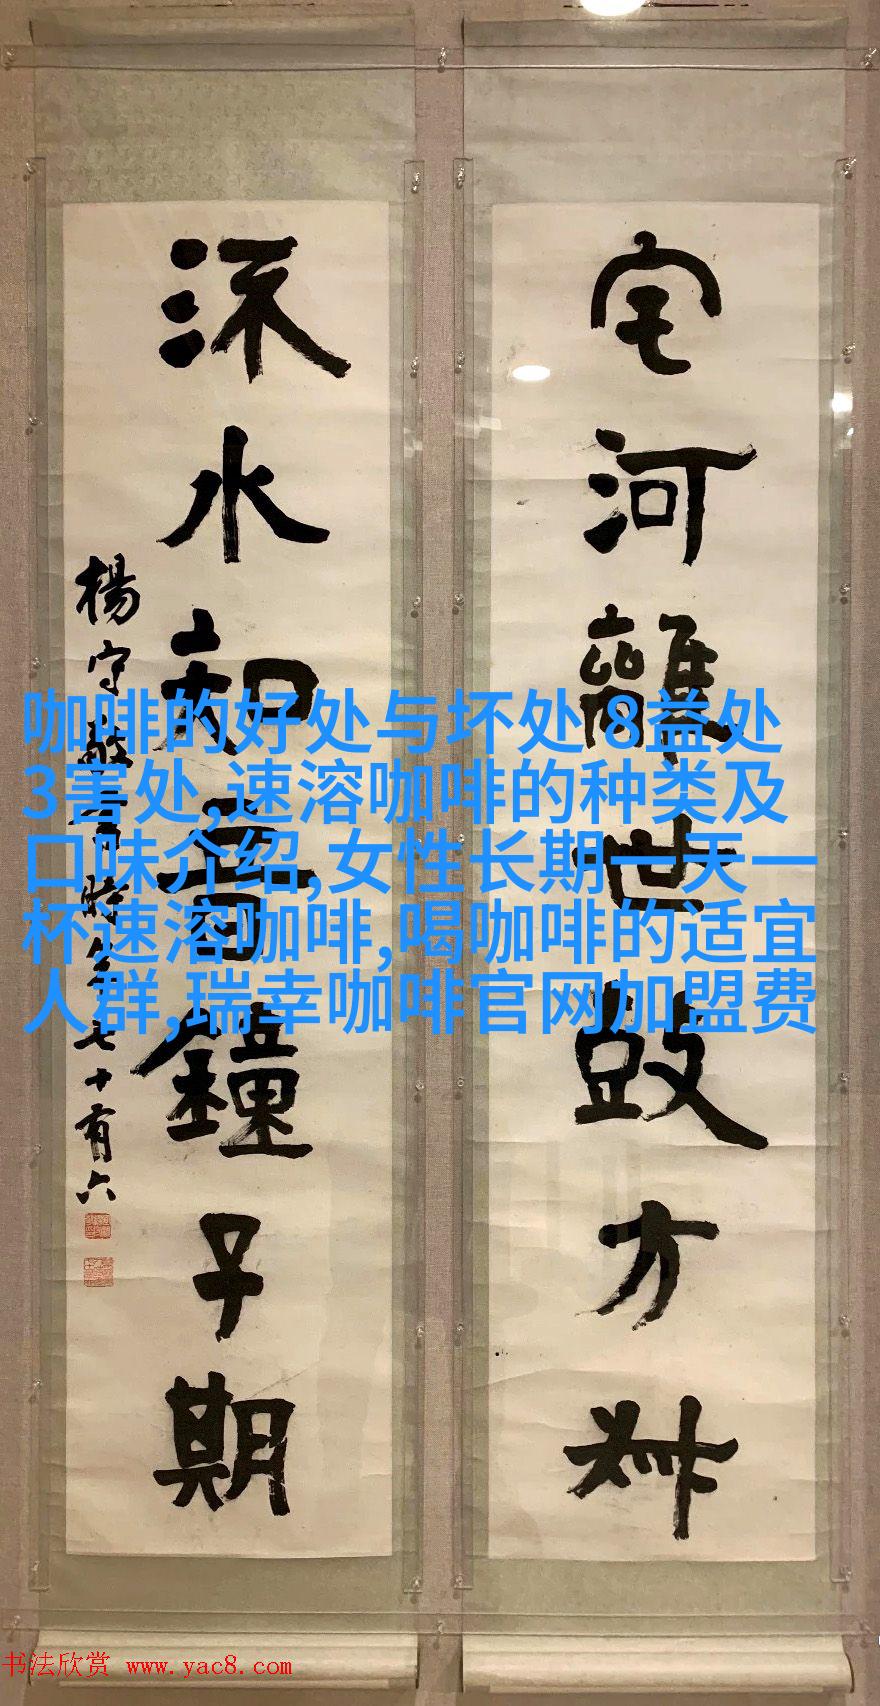 宅河離世鼓方叔
㳅水知音鐘子期
楊守敬書時年七十有六
咖啡的好处与坏处 8益处
3害处,速溶咖啡的种类及
口味介绍,女性长期一天一
杯速溶咖啡,喝咖啡的适宜
人群,瑞幸咖啡官网加盟费
书法欣赏 www.yac8.com